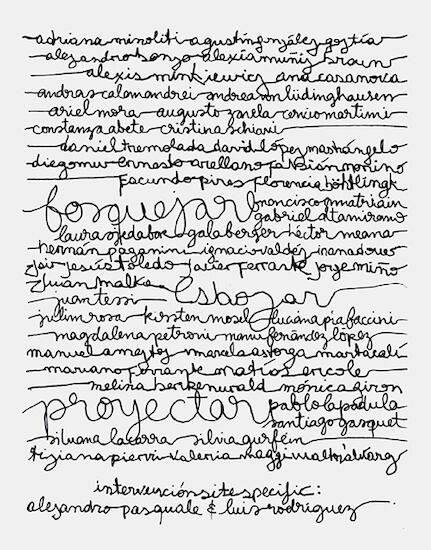 adriana minoliti agustín gonzález goytía
alejandro bonzo alexia muñiz braun
alexis minkiewicz ana casanova
andras calamandrei andrea von lüdinghausen
ariel mora augusto zanela cencio martini
constanza abete cristina schiavi
daniel tremolada david lópez mastrángelo
diego mur ernesto arellano fabián
facundo pires florencia böhtlingk
bosquejar
gabriel altamirano
laura ojeda bär gala berger héctor meana
hernán paganini ignacio valdéz
jesús toledo javier ferrante jorge miño
juan malka
juan tessi esbozar
julim rosa kirsten mosel luciana pia faccini
magdalena petroni manu fernández lópez
manuel ameztoy marcela astorga marta calí
mariano ferrante matías ercole
melina berkenwald mónica giron
proyectar pablo lapadula
santiago gasquet
silvana lacarra silvia gurfein
tiziana pierri valeria maggi
intervención site specific:
alejandro pasquale & luis rodriguez